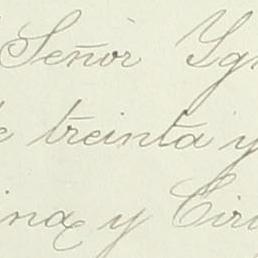 Señor Yg
e treinta y
ina y Ciri